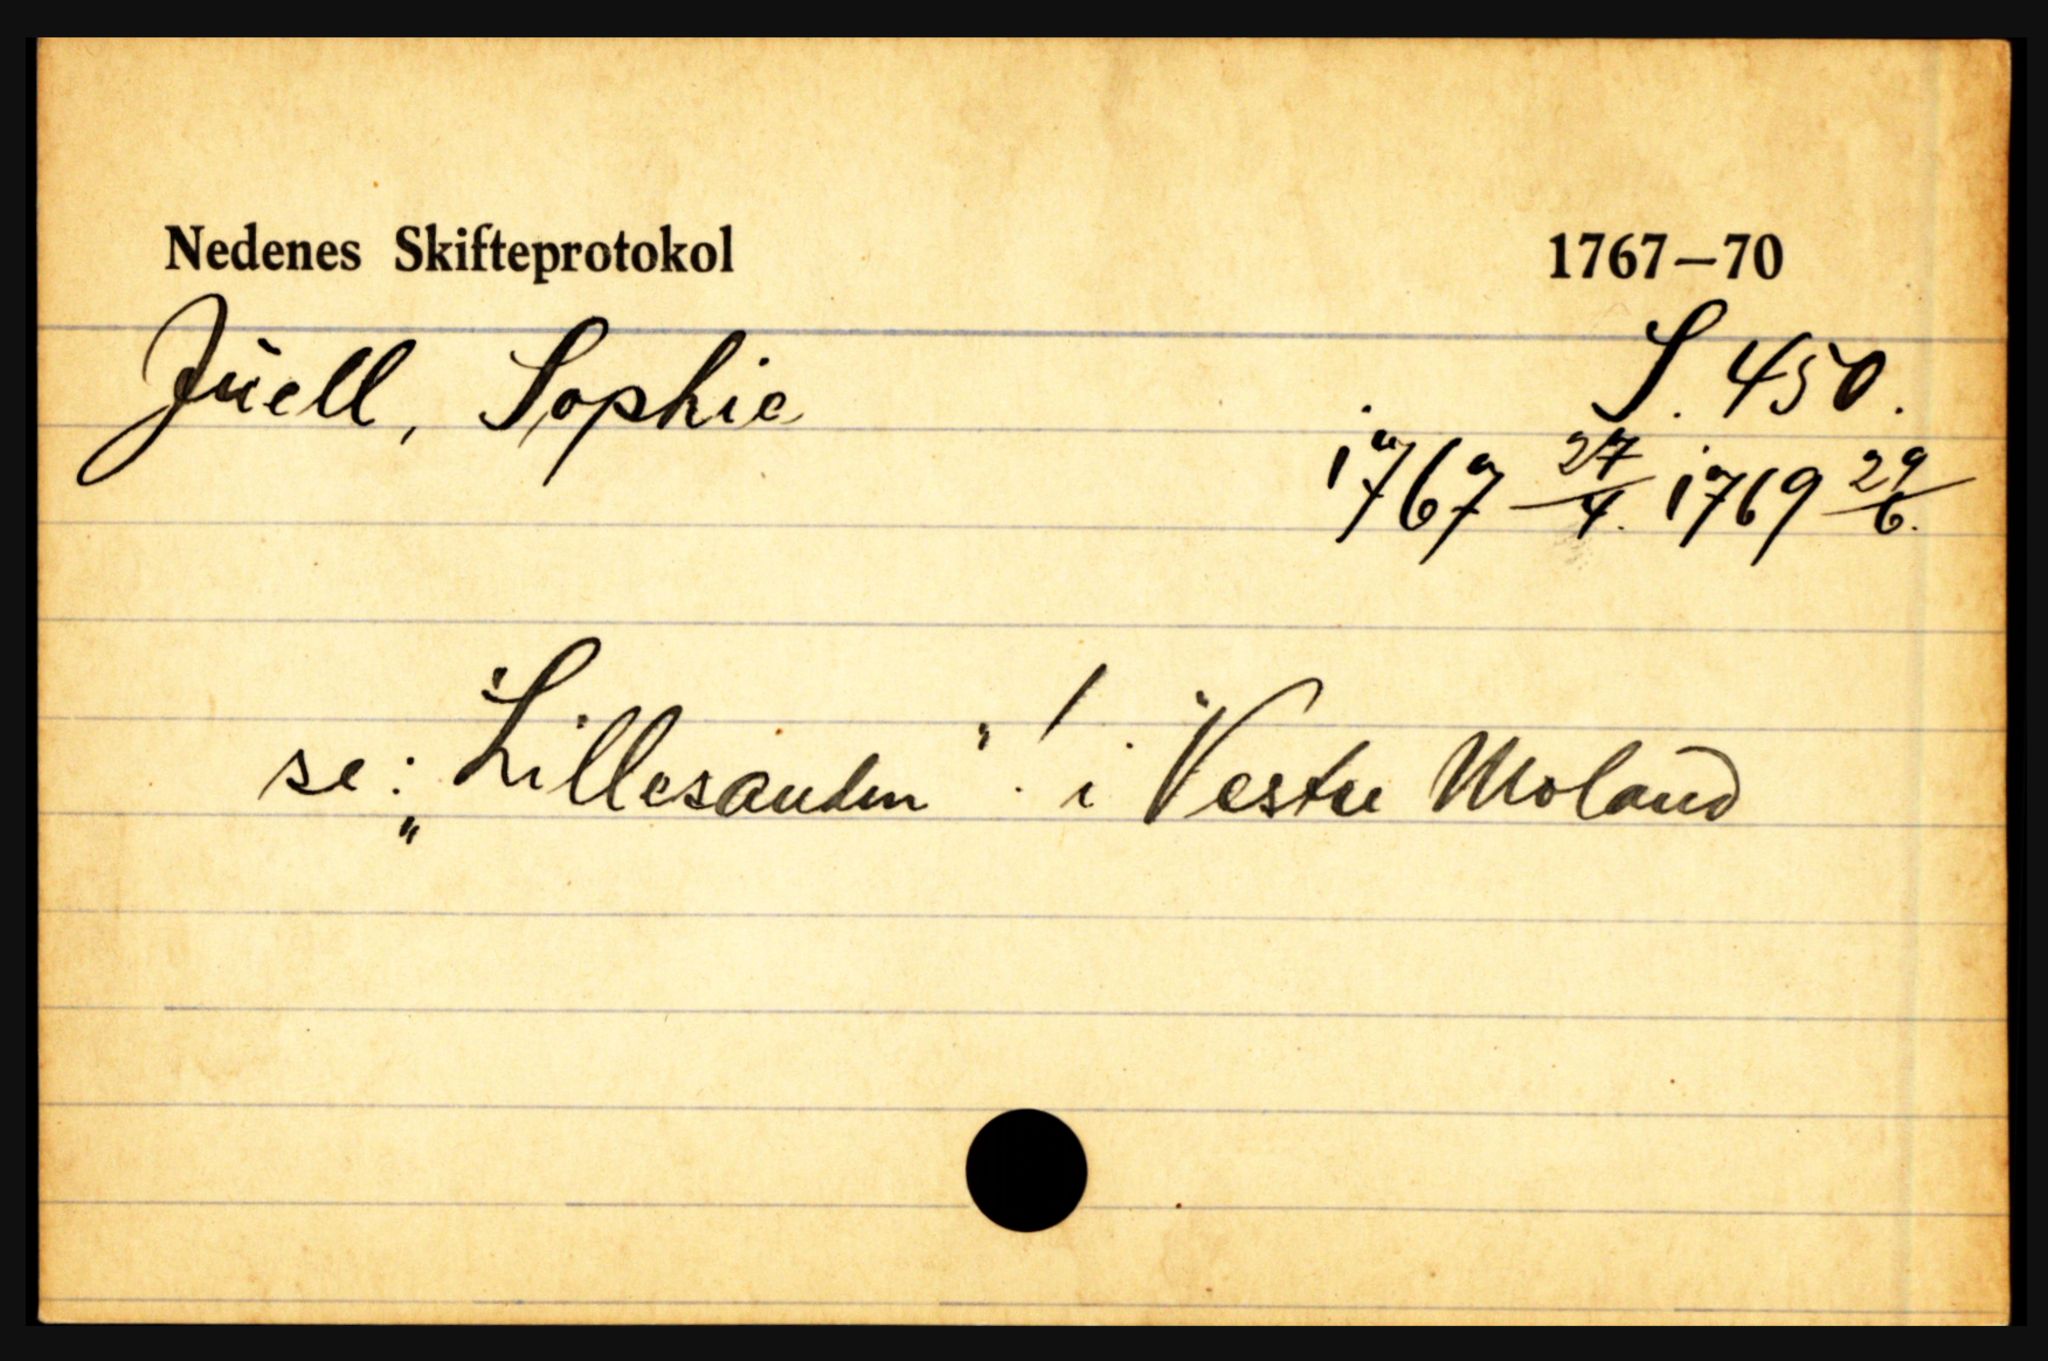 Nedenes Skifteprotokol 1767–70
Juell, Sophie S. 450.
1767 27/4. 1769 29/6.
se: „Lillesanden“! i Vestre Moland